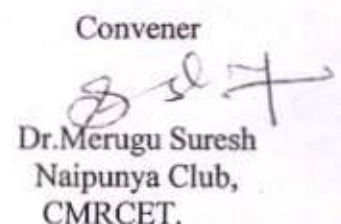 Convener
Dr.Merugu Suresh
Naipunya Club,
CMRCET.